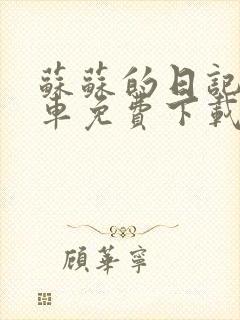 蘇蘇的日記
車免費下載
顧華寧